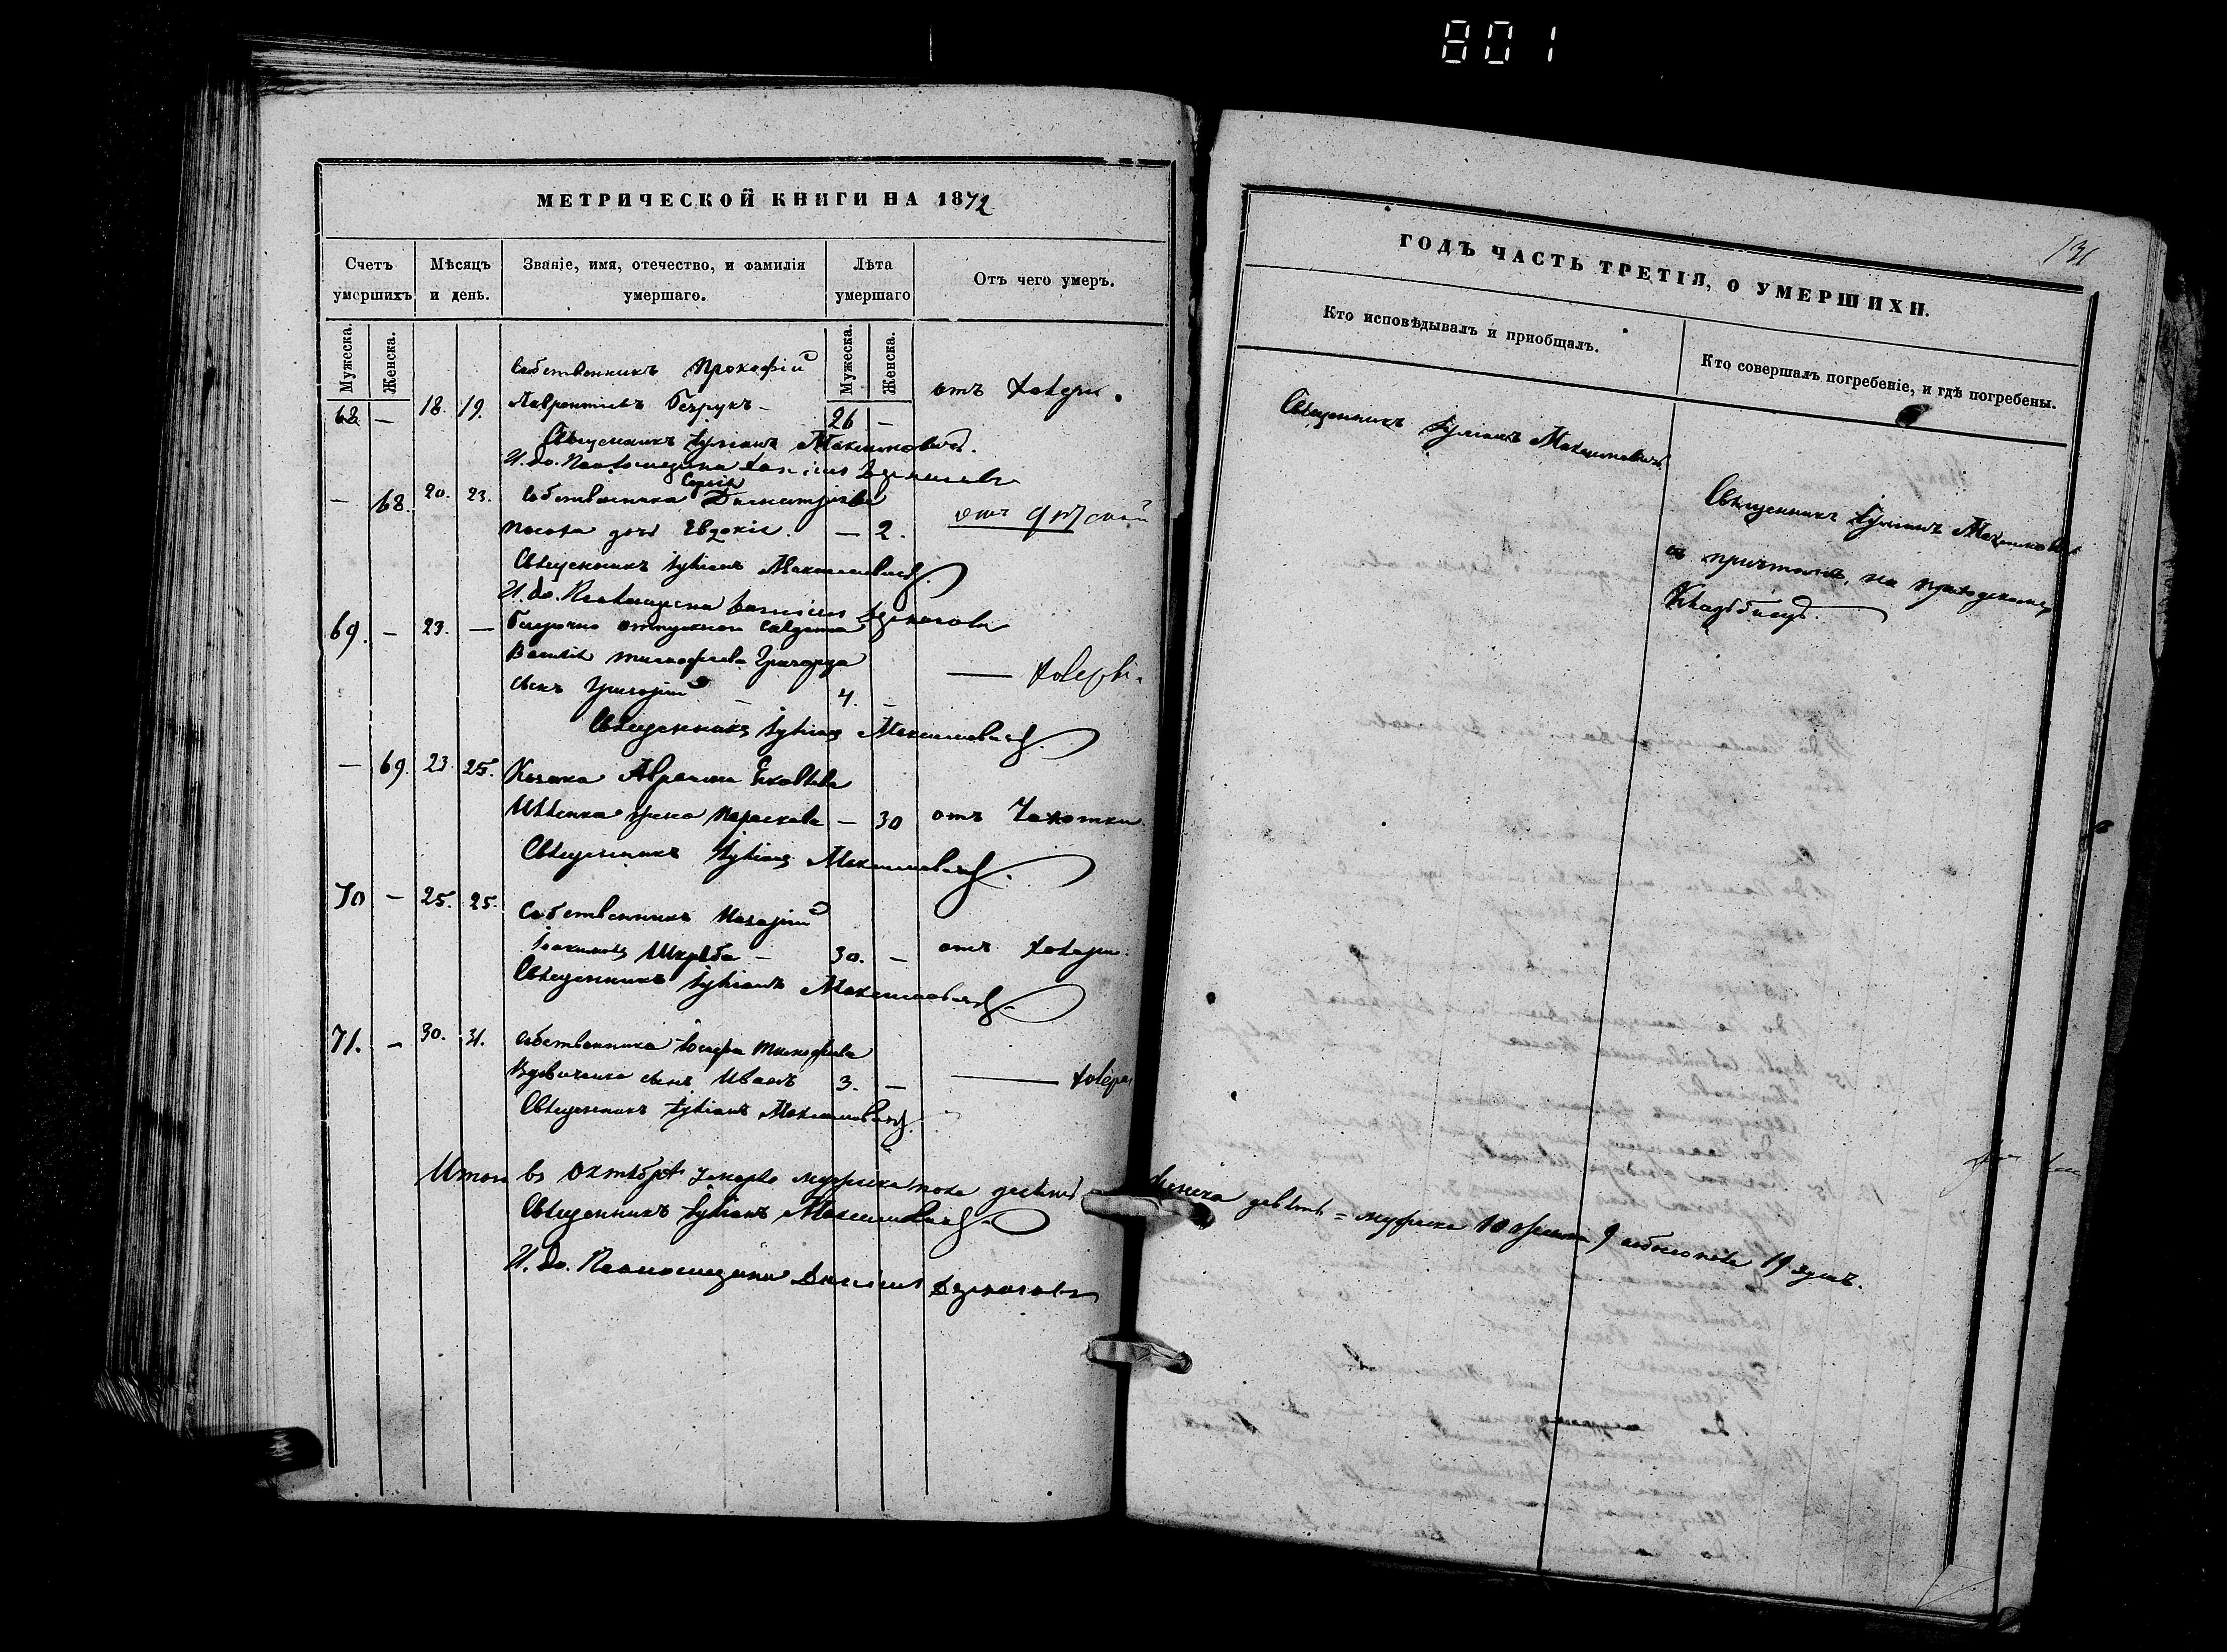 801
МЕТРИЧЕСКОЙ КНИГИ НА 1872
Счетъ умершихъ
Мѣсяцъ и день.
Званіе, имя, отечество, и фамилія умершаго.
Лѣта умершаго
Отъ чего умеръ.
Мужеска.
Женска.
Мужеска.
Женска.
Собственникъ Прокофій
68 — 18. 19. Лаврентіевъ Безрукъ — 26 — отъ холеры.
Священникъ Іуліанъ Максимовичъ.
И. до. Псаломщика
— 68. 20. 23. Собственника Сергія Димитріева
дочь Евдокія. — 2. отъ
Священникъ Іуліанъ Максимовичъ.
И. до. Псаломщика
69. — 23. — Безсрочно отпускнаго солдата
Василія Тимофеева
сынъ Григорій 4. — — холеры.
Священникъ Іуліанъ Максимовичъ.
— 69. 23 25. Козака
жена Параскева — 30 отъ Чахотки.
Священникъ Іуліанъ Максимовичъ.
70 — 25. 25. Собственникъ Назарій
Іоакимовъ Шкреба — 30. — отъ холеры.
Священникъ Іуліанъ Максимовичъ.
71. — 30. 31. Собственника Іосифа Тимофеева
сынъ Иванъ 3. — — холеры
Священникъ Іуліанъ Максимовичъ.
Итого въ Октябрѣ умерло мужеска пола десять
женска девять = мужеска 10 женска 9 обоего пола 19 душъ.
Священникъ Іуліанъ Максимовичъ.
И. до. Псаломщика
131
ГОДЪ ЧАСТЬ ТРЕТІЯ, О УМЕРШИХЪ.
Кто исповѣдывалъ и приобщалъ.
Кто совершалъ погребеніе, и гдѣ погребены.
Священникъ Іуліанъ Максимовичъ
Священникъ Іуліанъ Максимовичъ
съ причтомъ, на приходскомъ
Кладбищѣ.